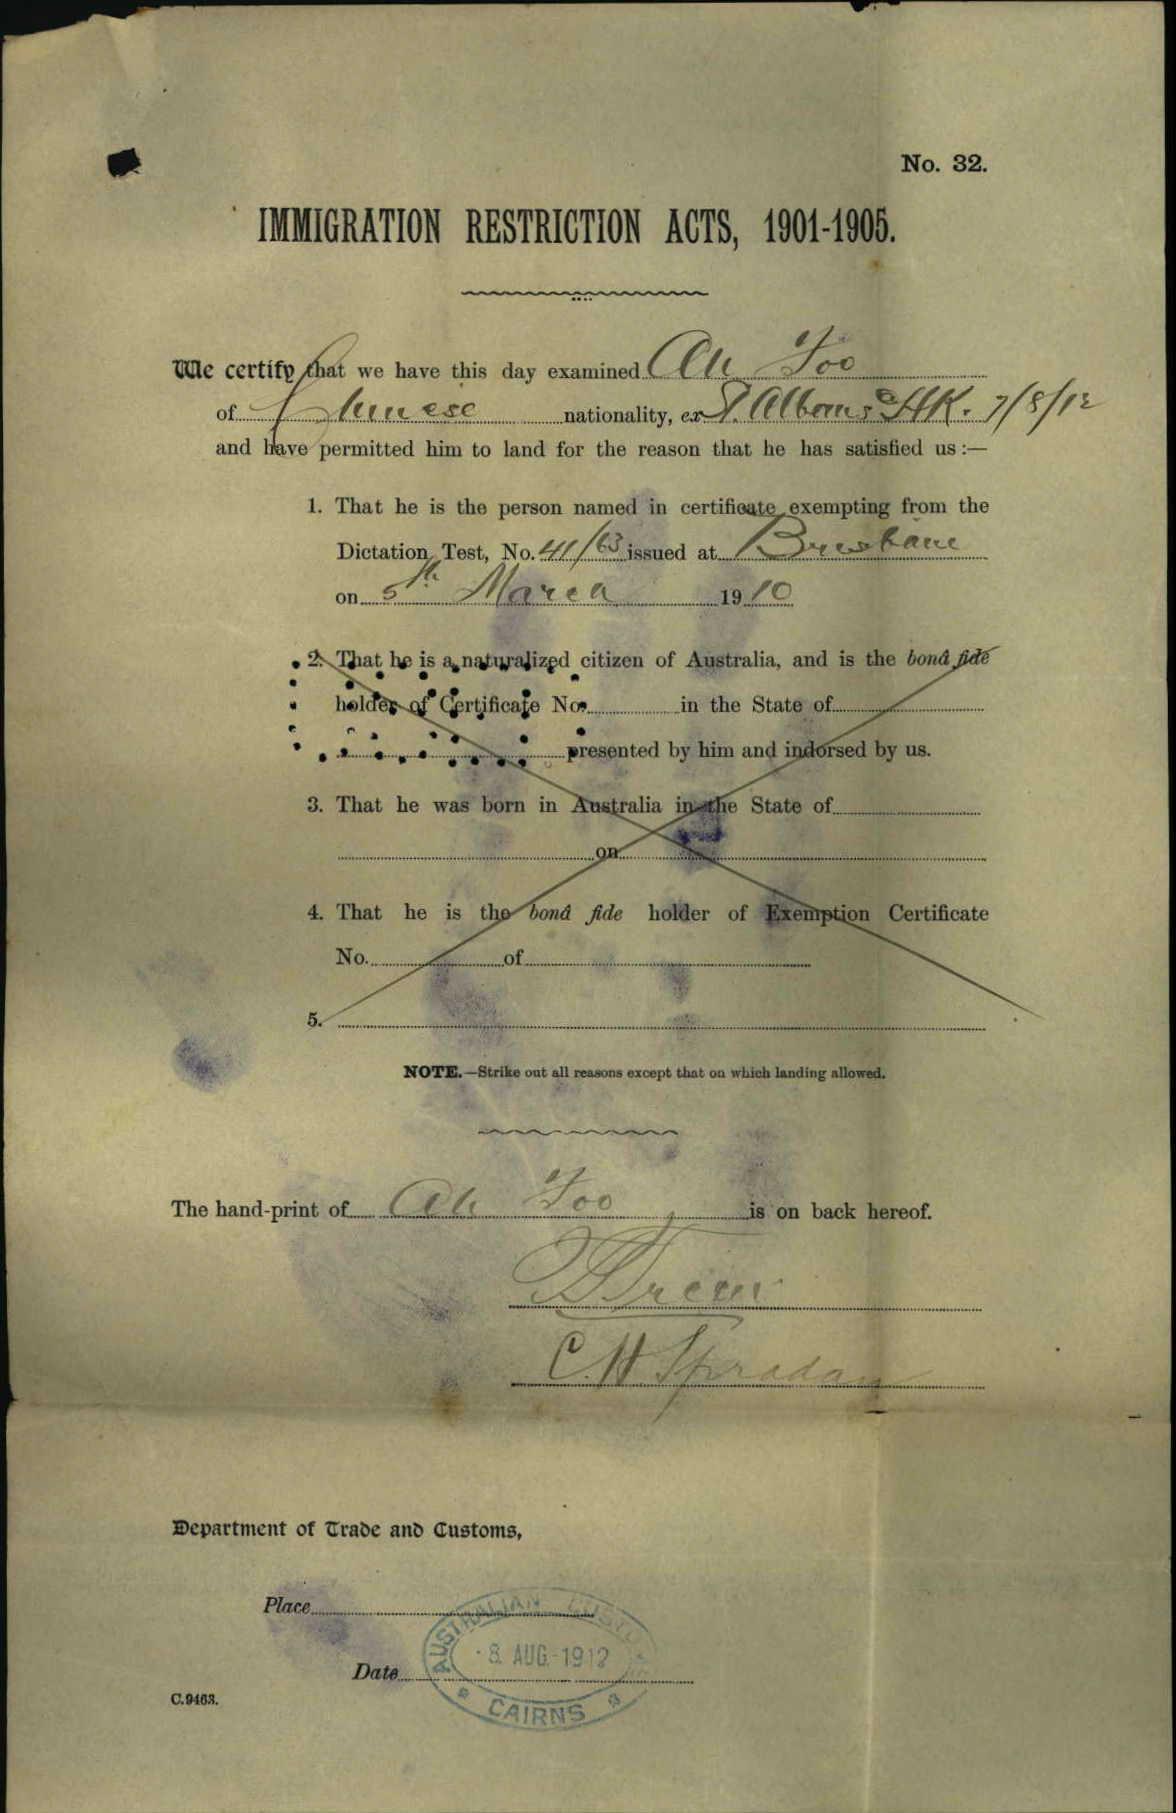 No. 32.
IMMIGRATION RESTRICTION ACTS, 1901-1905.
We certify that we have this day examined Ah Foo
of Chinese nationality, ex St. Albans @ HK. 7/8/12
and have permitted him to land for the reason that he has satisfied us :—
1. That he is the person named in certificate exempting from the
Dictation Test, No. 41/63 issued at Brisbane
on 5th March 1910
2. That he is a naturalized citizen of Australia, and is the bonâ fide
holder of Certificate No. in the State of
presented by him and indorsed by us.
3. That he was born in Australia in the State of
on
4. That he is the bonâ fide holder of Exemption Certificate
No. of
5.
NOTE.—Strike out all reasons except that on which landing allowed.
The hand-print of Ah Foo is on back hereof.
C. H.
Department of Trade and Customs,
Place
AUSTRALIAN CUSTOMS
8 AUG. 1912
Date
CAIRNS
C.9463.